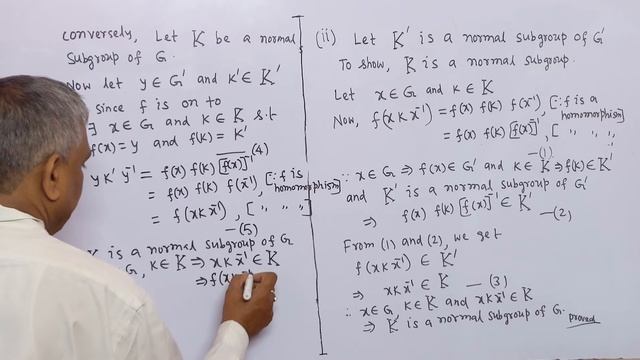 conversely, Let K be a normal
Subgroup of G.
Now let y ∈ G' and k' ∈ K'
since f is on to
∃ x ∈ G and k ∈ K s.t
f(x) = y and f(k) = K'
—(4)
y k' y⁻¹ = f(x) f(k) [f(x)]⁻¹
= f(x) f(k) f(x⁻¹), [∵ f is homomorphism]
= f(x k x⁻¹), [ " " " ]
—(5)
is a normal subgroup of G
G, k ∈ K ⇒ x k x⁻¹ ∈ K
⇒ f(x
(ii) Let K' is a normal subgroup of G'
To show, K is a normal subgroup.
Let x ∈ G and k ∈ K
Now, f(x k x⁻¹) = f(x) f(k) f(x⁻¹), [∵ f is a homomorphism]
= f(x) f(k) [f(x)]⁻¹, [ " " " ]
—(1)
∵ x ∈ G ⇒ f(x) ∈ G' and k ∈ K ⇒ f(k) ∈ K'
and K' is a normal subgroup of G'
⇒ f(x) f(k) [f(x)]⁻¹ ∈ K' —(2)
From (1) and (2), we get
f(x k x⁻¹) ∈ K'
⇒ x k x⁻¹ ∈ K —(3)
∴ x ∈ G, k ∈ K and x k x⁻¹ ∈ K
⇒ K is a normal subgroup of G. proved